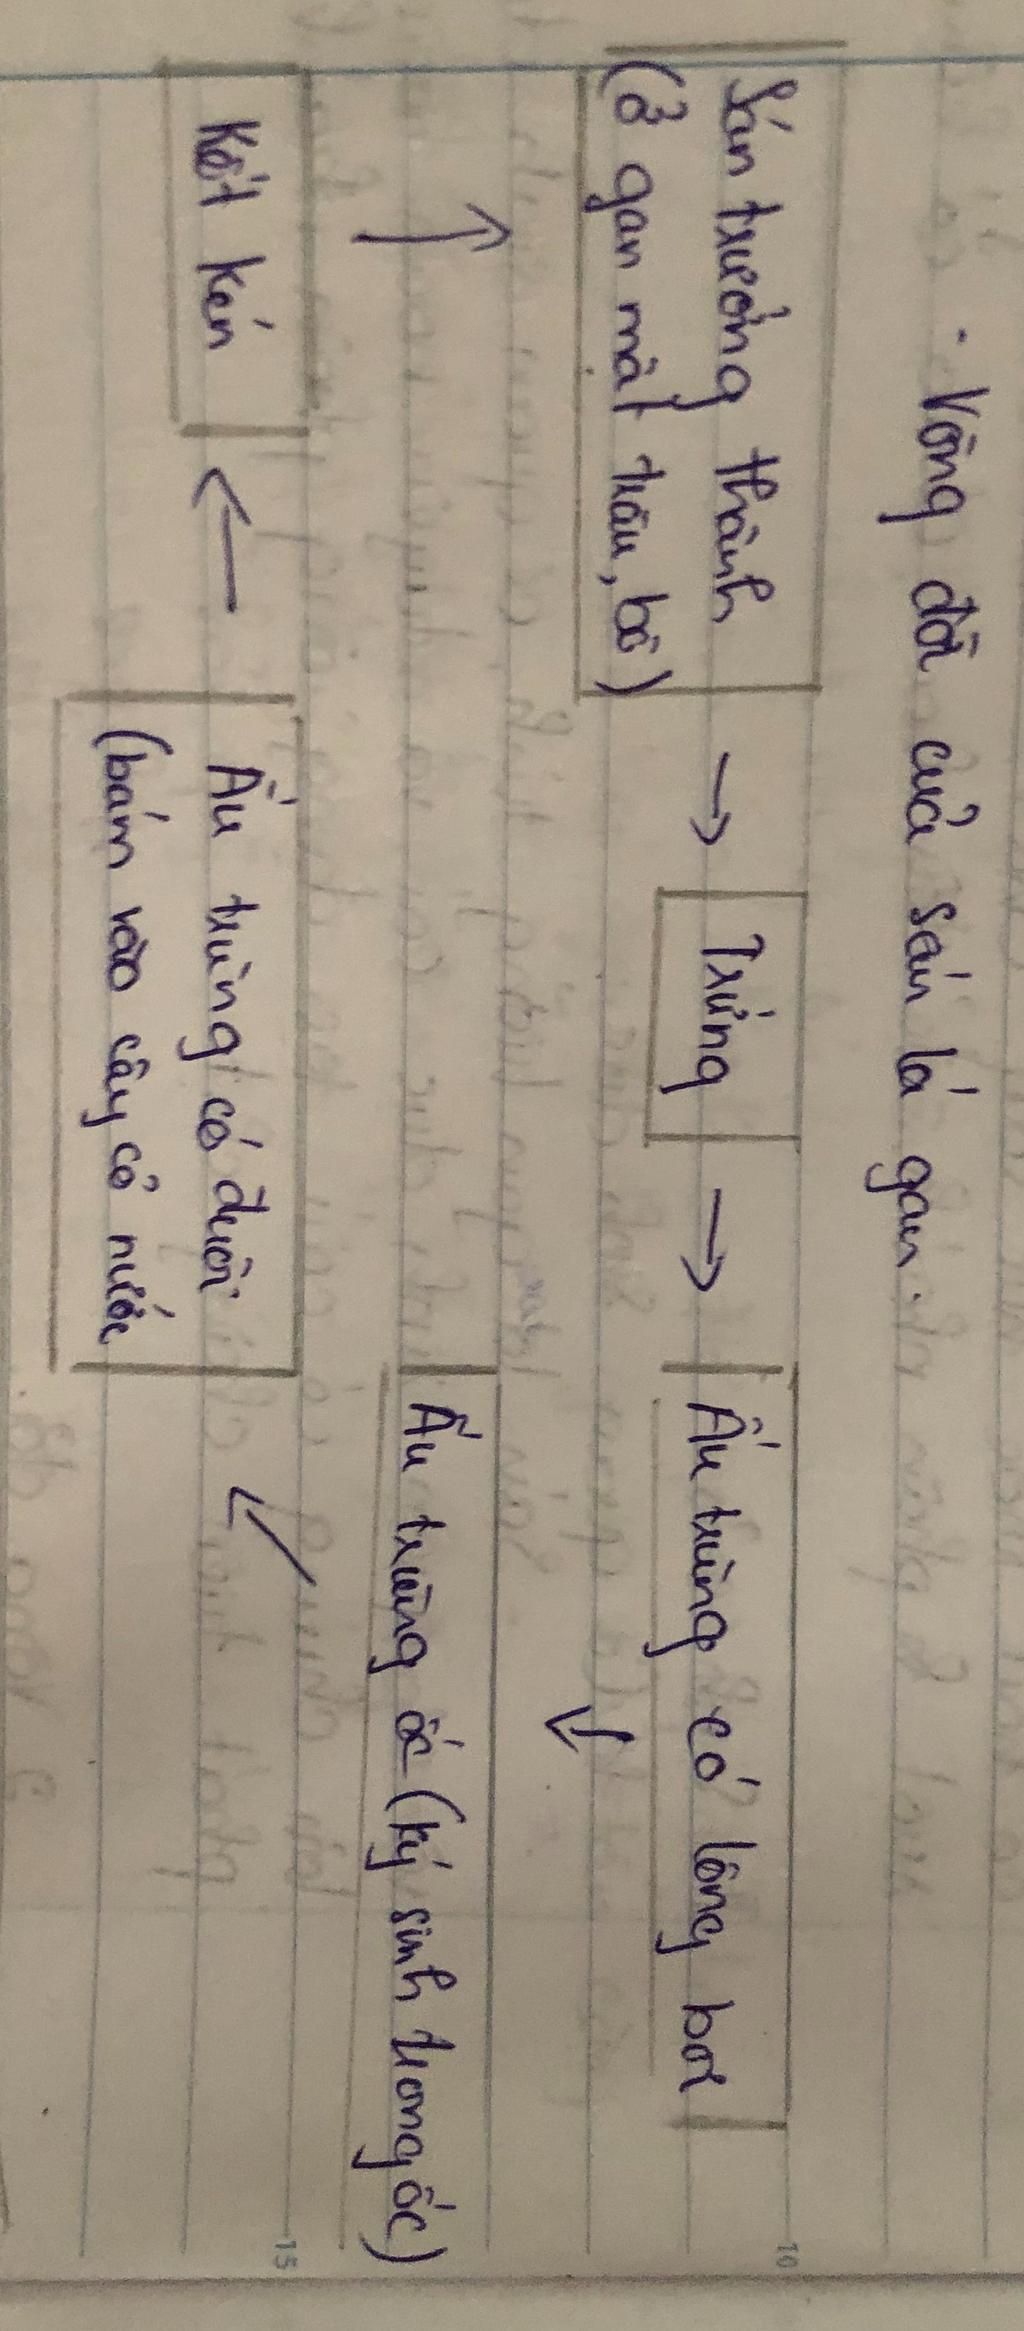 - Vòng đời của sán lá gan.
Sán trưởng thành → Trứng → Ấu trùng có lông bơi
(ở gan mật trâu, bò)
Ấu trùng ốc (ký sinh trong ốc)
Kết kén ← Ấu trùng có đuôi
(bám vào cây cỏ nước
10
15